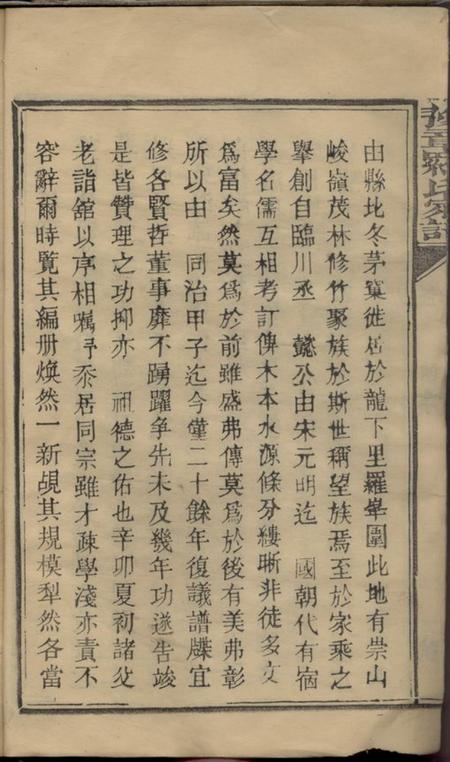 由縣北冬茅窠徙居於龍下里羅峯圍此地有崇山
峻嶺茂林修竹聚族於斯世稱望族焉至於家乘之
舉創自臨川丞 懿公由宋元明迄 國朝代有宿
學名儒互相考訂俾木本水源條分縷晰非徒多文
為富矣然莫為於前雖盛弗傳莫為於後有美弗彰
所以由 同治甲子迄今僅二十餘年復議譜牒宜
修各賢哲董事靡不踴躍爭先未及幾年功遂告竣
是皆贊理之功抑亦 祖德之佑也辛卯夏初諸父
老詣舘以序相囑予忝居同宗雖才疎學淺亦責不
容辭爾時覽其編册煥然一新覘其規模犁然各當
羅氏家譜